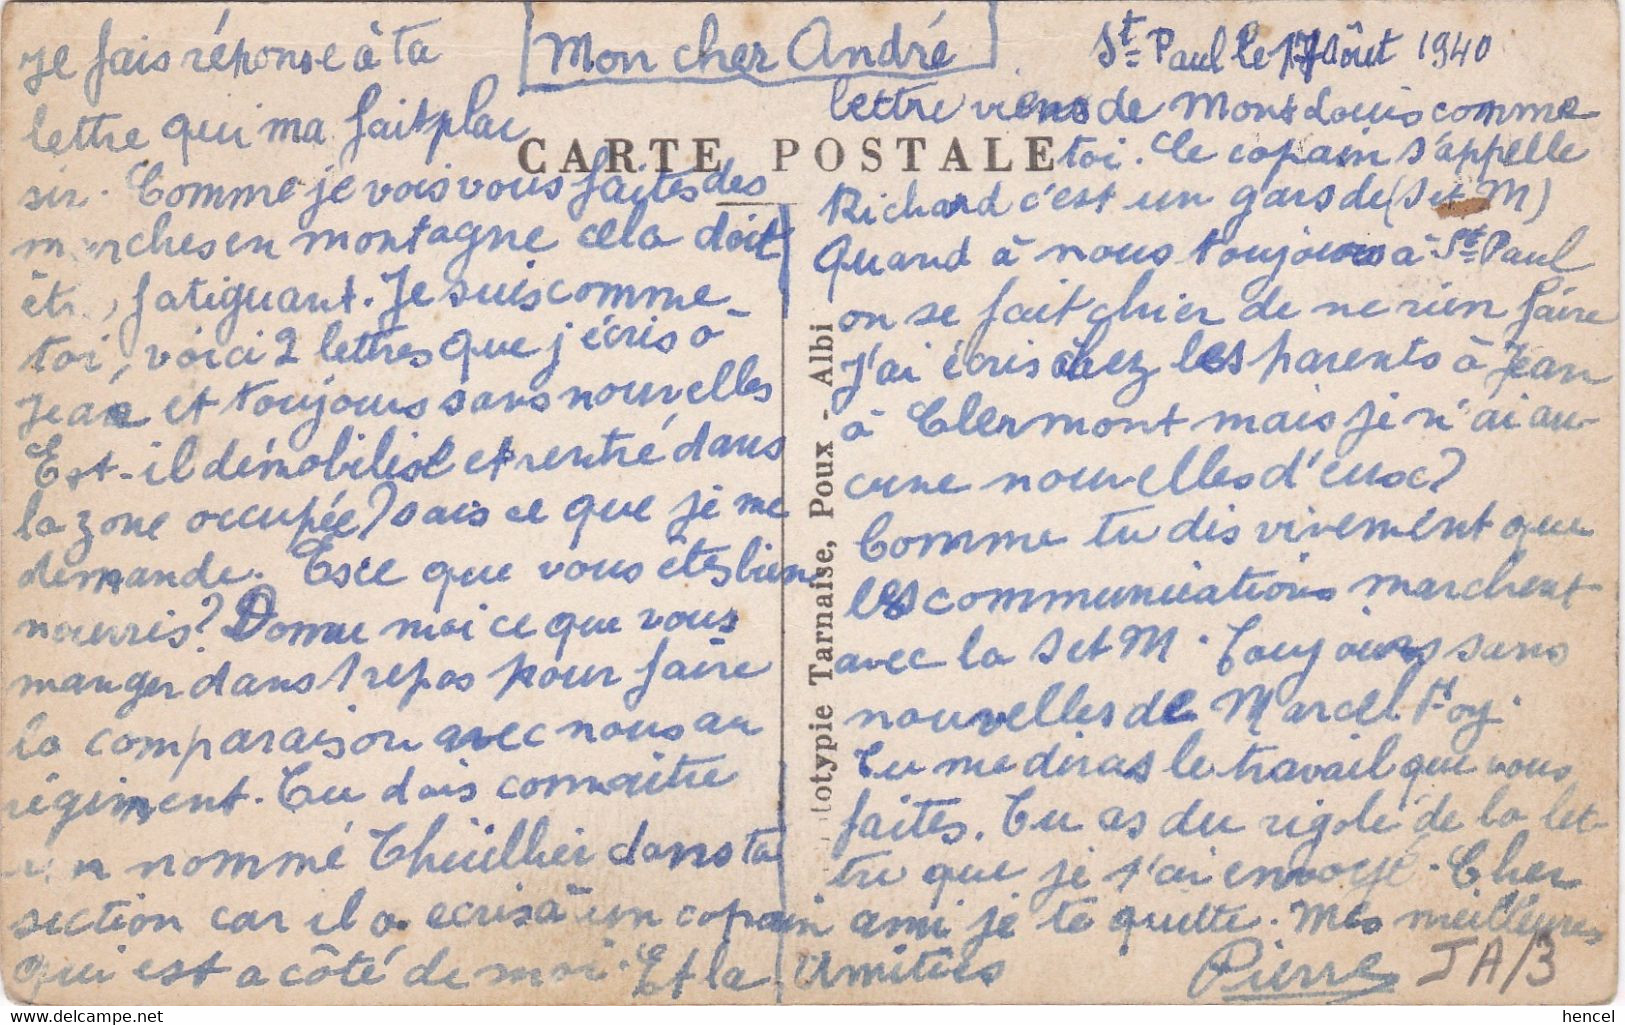 St Paul le 17 Aôut 1940
Mon cher André
CARTE POSTALE
Je fais réponse à ta
lettre qui ma fait plai
sir. Comme je vois vous faites des
marches en montagne cela doit
être fatiguant. Je suis comme
toi, voici 2 lettres que j'écris à
Jean et toujours sans nouvelles
Est-il démobilisé et rentré dans
la zone occupée? sais ce que je me
demande. Esce que vous étes bien
nourris? Donne moi ce que vous
manger dans 1 repas pour faire
la comparaison avec nous au
régiment. Tu dois connaitre
un nommé Thuillier dans ta
section car il a ecris à un copain
qui est a côté de moi. Et la
lettre viens de Mont Louis comme
toi. Le copain s'appelle
Richard c'est un gars de (S et M)
Quand à nous toujours à St Paul
on se fait chier de ne rien faire
J'ai écris chez les parents à Jean
à Clermont mais je n'ai au-
cune nouvelles d'eux?
Comme tu dis vivement que
les communications marchent
avec la S et M. Toujours sans
nouvelles de Marcel Foy.
Tu me diras le travail que vous
faites. Tu as du rigolé de la let-
tre que je t'ai envoyé. Cher
ami je te quitte. Mes meilleures
Amitiés
Pierre
JA/3
totypie Tarnaise, Poux - Albi
hencel